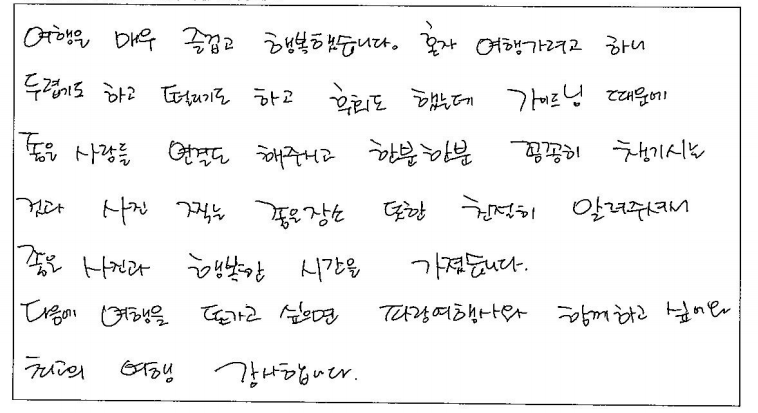 여행은 매우 즐겁고 행복했습니다. 혼자 여행가려고 하니
두렵기도 하고 떨리기도 하고 후회도 했는데 가이드님 때문에
좋은 사람들 연결도 해주시고 한분한분 꼼꼼히 챙기시는
것과 사진 찍는 좋은장소 또한 친절히 알려주셔서
좋은 사진과 행복한 시간을 가졌습니다.
다음에 여행을 또가고 싶으면 파랑여행사와 함께하고 싶어요
최고의 여행 감사합니다.